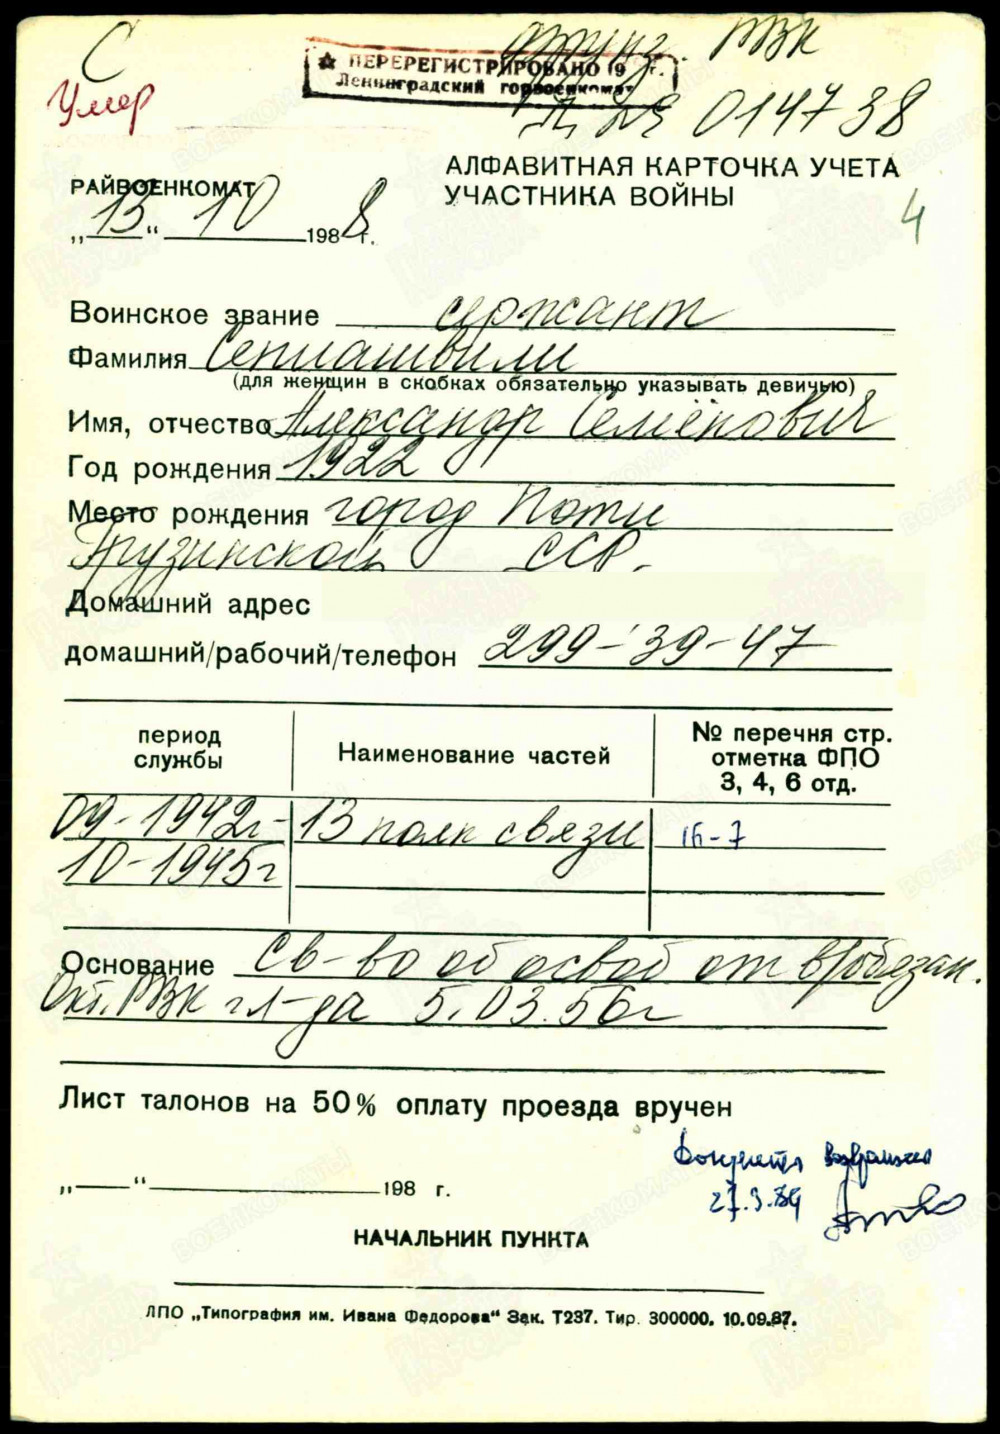 С
Умер
ПЕРЕРЕГИСТРИРОВАНО 19 г.
Ленинградский горвоенкомат
РВК
014738
АЛФАВИТНАЯ КАРТОЧКА УЧЕТА
УЧАСТНИКА ВОЙНЫ
4
РАЙВОЕНКОМАТ
„13“ 10 1988 г.
Воинское звание сержант
Фамилия Сепиашвили
(для женщин в скобках обязательно указывать девичью)
Имя, отчество Александр Семёнович
Год рождения 1922
Место рождения город Поти
Грузинской ССР.
Домашний адрес
домашний/рабочий/телефон 299-39-47
период службы
Наименование частей
№ перечня стр. отметка ФПО 3, 4, 6 отд.
09-1942г- 13 полк связи 16-7
10-1945г
Основание Св-во об освоб от в/обязан.
Окт. РВК гл-да 5.03.56г
Лист талонов на 50% оплату проезда вручен
„ “ 198 г.
27.3.89
НАЧАЛЬНИК ПУНКТА
ЛПО „Типография им. Ивана Федорова“ Зак. Т237. Тир. 300000. 10.09.87.